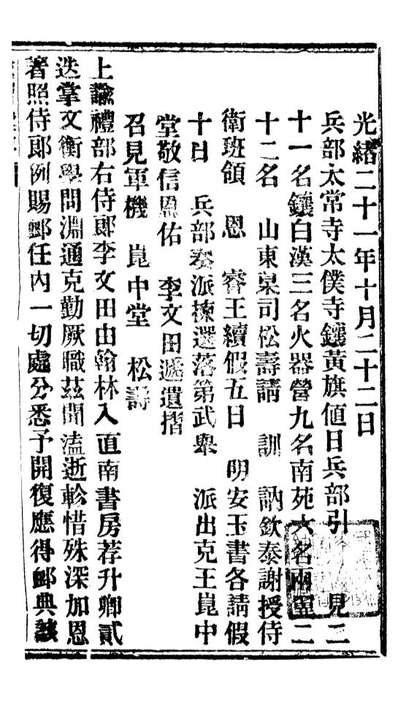 光緒二十一年十月二十二日
兵部太常寺太僕寺鑲黃旗值日兵部引 見二
十一名鑲白漢三名火器營九名南苑六名兩單二
十二名 山東臬司松壽請 訓 訥欽泰謝授侍
衛班領 恩 睿王續假五日 明安玉書各請假
十日 兵部奏派揀選落第武舉 派出克王崑中
堂敬信恩佑 李文田遞遺摺
召見軍機 崑中堂 松壽
上諭禮部右侍郎李文田由翰林入直南書房荐升卿貳
迭掌文衡學問淵通克勤厥職茲聞溘逝軫惜殊深加恩
著照侍郎例賜卹任內一切處分悉予開復應得卹典該